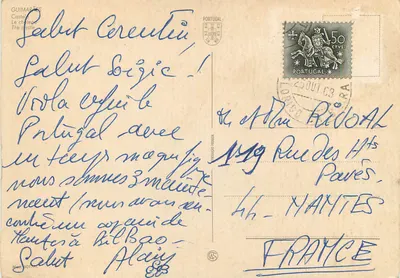 GUIMARÃES
PORTUGAL
Salut Corentin,
Salut Loïzic!
Voilà enfin le
Portugal avec
un temps magnifique
nous sommes 3 mainte-
nant (nous avons ren-
contré un copain de
Nantes à Bilbao.
Salut Alain
$50
CTVS
PORTUGAL
63
Mr et Mme RIVOAL
119 Rue des Hts
Pavés
44. NANTES
FRANCE